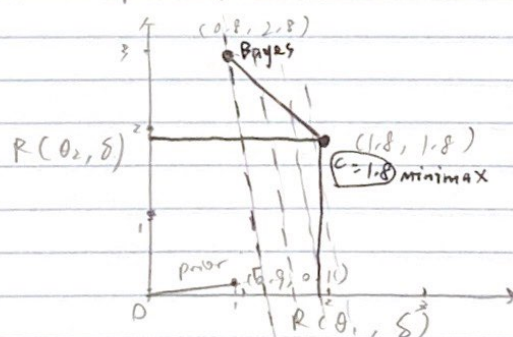 (0.8, 2.8)
3
Bayes
2
R(θ₂, δ)
(1.8, 1.8)
C = 1.8 minimax
1
prior
(0.9, 0.1)
0
1
2
3
R(θ₁, δ)